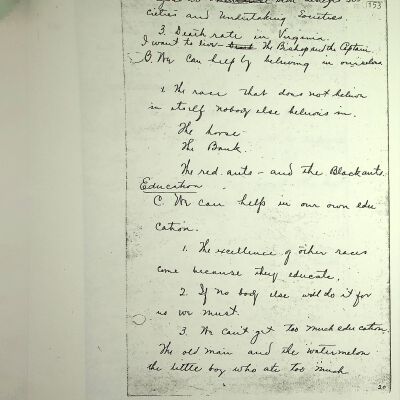 cieties and Undertaking Societies.
3. Death rate in Virginia.
I want to live - the Bishop and the Captain.
B. We can help by believing in ourselves
1. The race that does not believe
in itself nobody else believes in.
The horse
The Bank.
The red ants - and the Black ants.
Education
C. We can help in our own edu
cation.
1. The excellence of other races
come because they educate.
2. If no body else will do it for
us we must.
3. We can't get too much education.
The old man and the watermelon
the little boy who ate too much
20